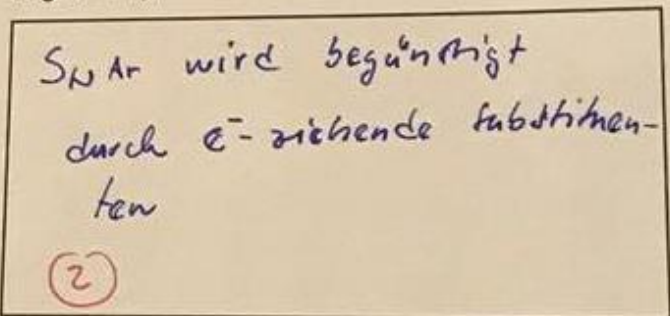 SNAr wird begünstigt
durch e⁻-ziehende Substituen-
ten
2